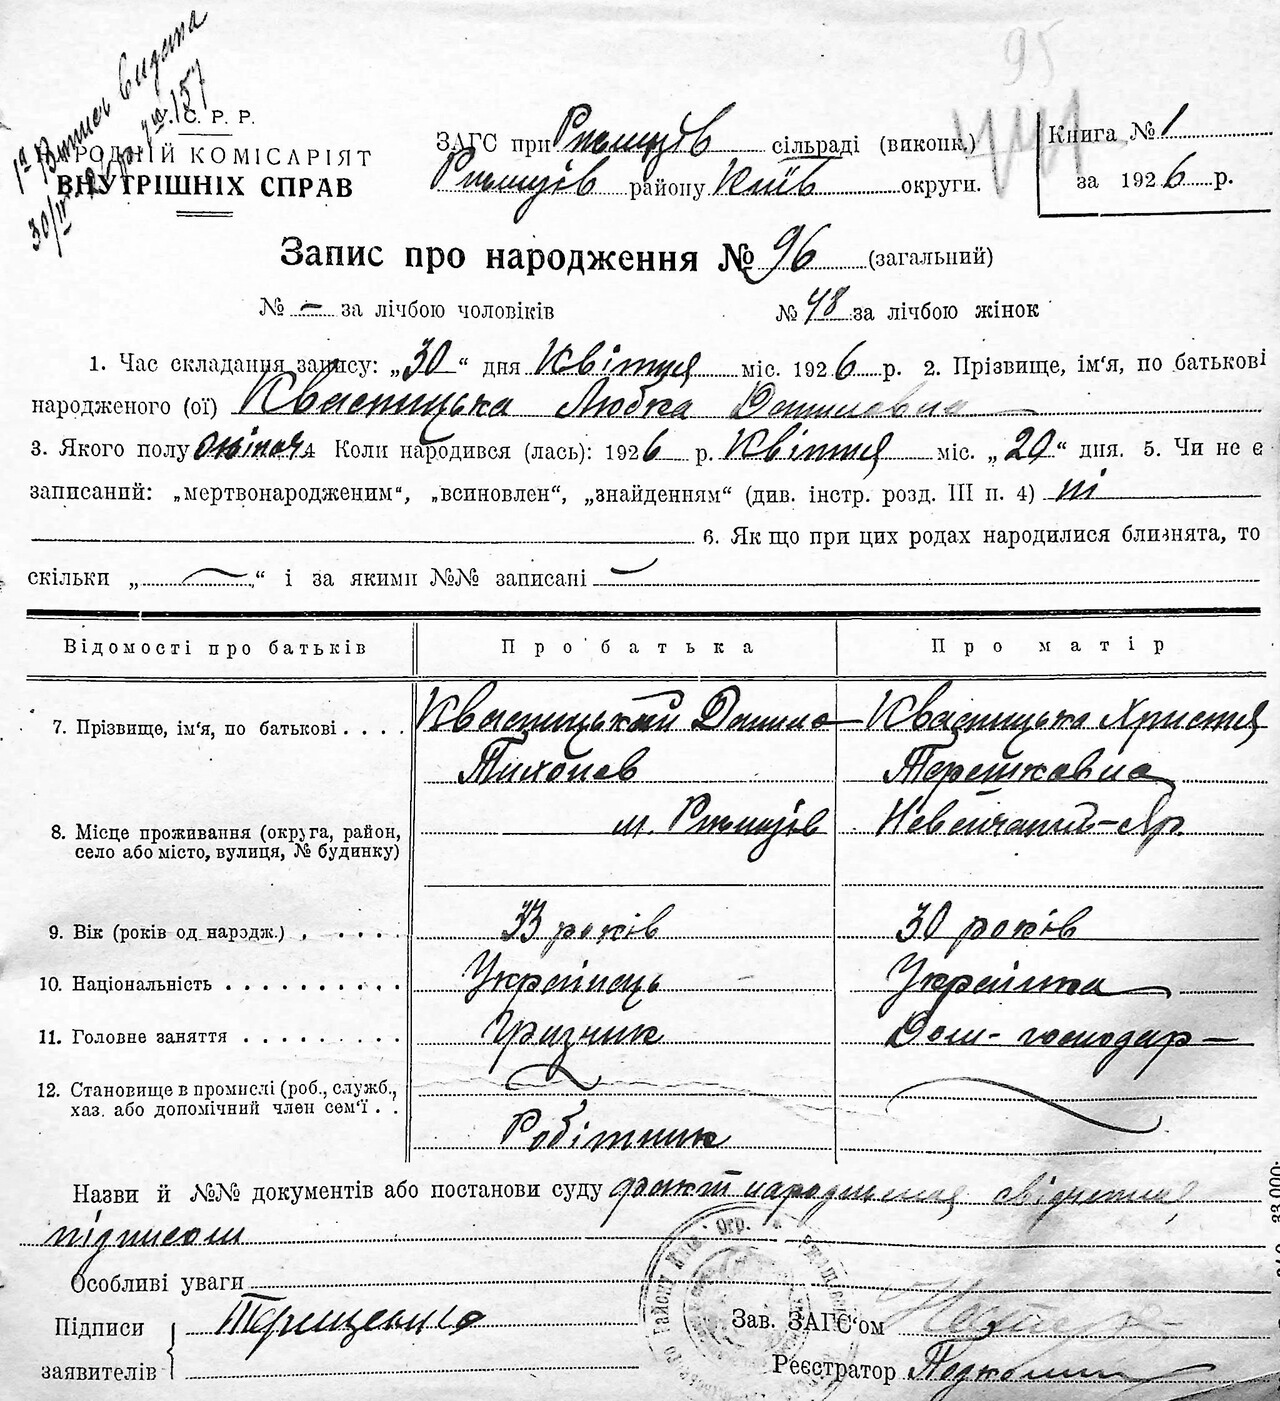 1ª Випись видана
30/IV
С. Р. Р.
НАРОДНІЙ КОМІСАРІЯТ
ВНУТРІШНІХ СПРАВ
95
ЗАГС при Ржищів сільраді (виконк.)
Ржищів району Київ округи.
Книга № 1
за 1926 р.
Запис про народження № 96 (загальний)
№ – за лічбою чоловіків № 48 за лічбою жінок
1. Час складання запису: „30“ дня Квітня міс. 1926 р. 2. Прізвище, ім‘я, по батькові
народженого (ої) Квасницька Любка Даниловна
3. Якого полу жіноч 4 Коли народився (лась): 1926 р. Квітня міс. „20“ дня. 5. Чи не є
записаний: „мертвонародженим“, „всиновлен“, „знайденням“ (див. інстр. розд. III п. 4) ні
6. Як що при цих родах народилися близнята, то
скільки „ – “ і за якими №№ записані –
Відомості про батьків Про батька Про матір
7. Прізвище, ім‘я, по батькові . . . . Квасницький Данило Квасницька Христя
Тихонов Терешковна
8. Місце проживання (округа, район, село або місто, вулиця, № будинку) м. Ржищів
9. Вік (років од народж.) . . . . . 33 років 30 років
10. Національність . . . . . . . . . . Українець Українка
11. Головне заняття . . . . . . . . . Дом- господар –
12. Становище в промислі (роб., служб., хаз. або допомічний член сем‘ї . .
Робітник
Назви й №№ документів або постанови суду факт народження свідчення
підписом
Особливі уваги
Підписи
заявителів
Терещенко
Зав. ЗАГС‘ом
Реєстратор
33.000